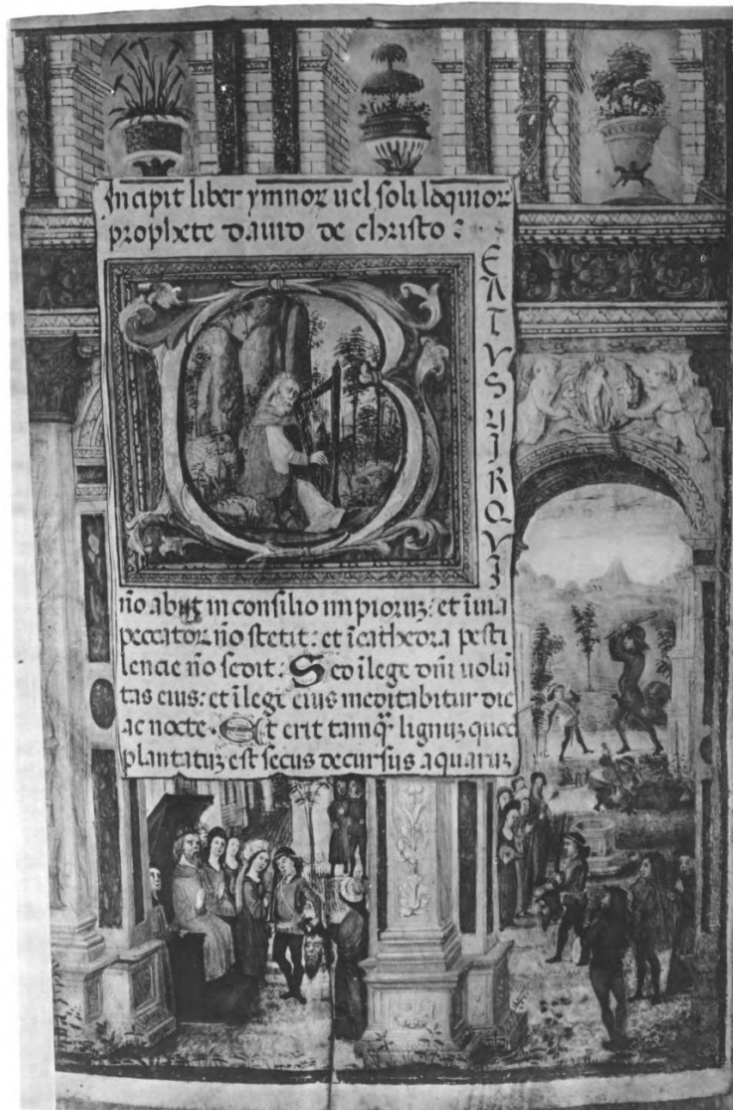 Incipit liber ymnoꝝ uel soliloquioꝝ
prophete dauid de christo:
BEATVS VIR QVI
nō abijt in consilio impioruȝ: et ī uia
peccatoꝝ nō stetit: et ī cathedra pesti
lencie nō sedit: Sed ī lege dnī uolū
tas eius: et ī lege eius meditabitur die
ac nocte. Et erit tamqͣ̄ lignuȝ quod
plantatuȝ est secus decursus aquaruȝ